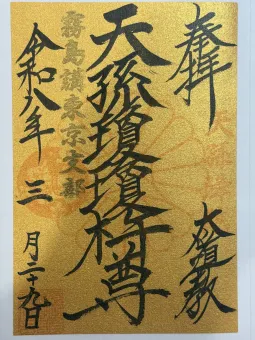 奉拝
天孫瓊瓊杵尊
霧島講東京支部
令和八年
三
月二十九日